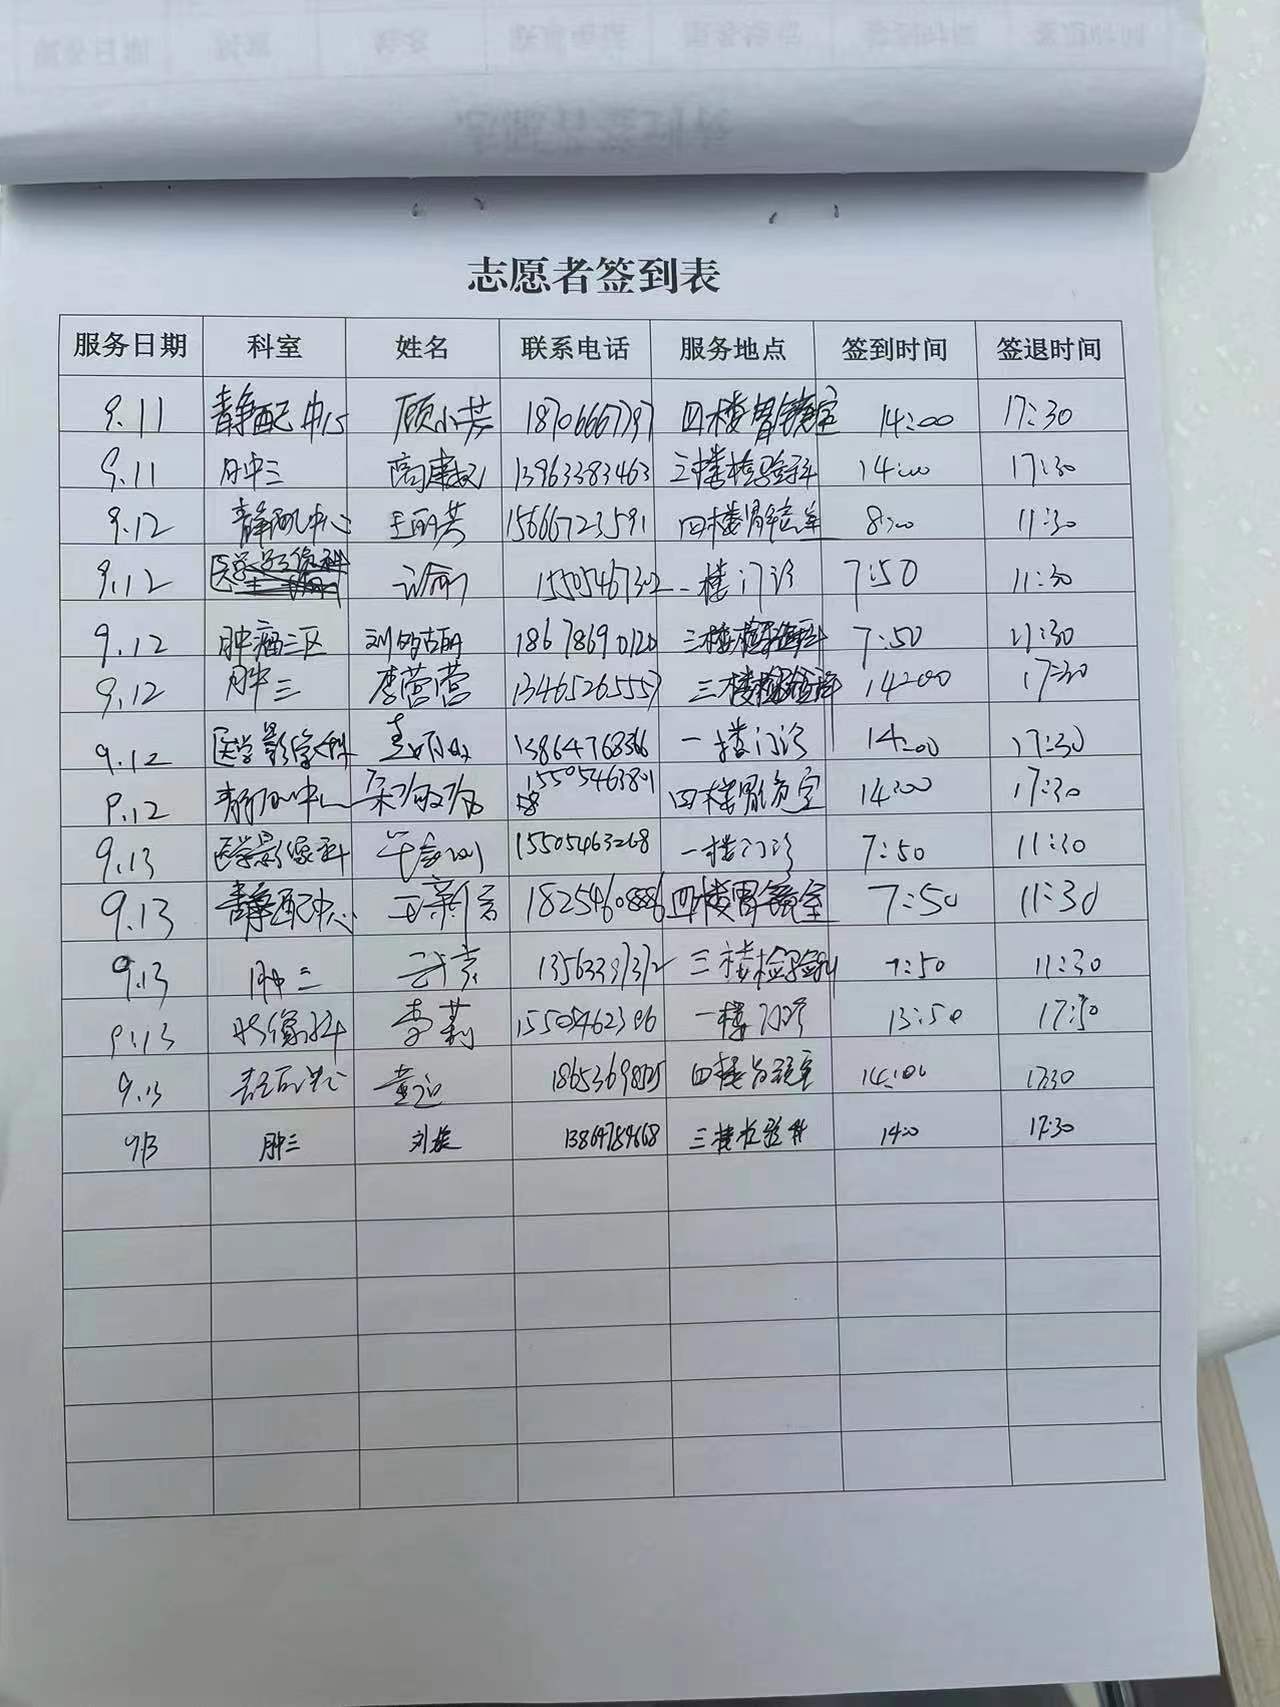 志愿者签到表
服务日期 科室 姓名 联系电话 服务地点 签到时间 签退时间
9.11 静配中心 顾小芳 18706667797 四楼胃镜室 14:00 17:30
9.11 肿三 13963383463 三楼检验科 14:00 17:30
9.12 静配中心 王丽芳 15666723591 四楼胃镜室 8:00 11:30
9.12 医学影像科 一楼门诊 7:50 11:30
9.12 肿瘤三区 18678690120 三楼检验科 7:50 11:30
9.12 肿三 李营营 13465265557 三楼检验科 14:00 17:30
9.12 医学影像科 13864768366 一楼门诊 14:00 17:30
9.12 静配中心 四楼胃镜室 14:00 17:30
9.13 医学影像科 15505463268 一楼门诊 7:50 11:30
9.13 静配中心 18254608886 四楼胃镜室 7:50 11:30
9.13 肿三 三楼检验科 7:50 11:30
9.13 影像科 李莉 15505462306 一楼门诊 13:50 17:50
9.13 四楼胃镜室 14:00 17:30
9.13 肿三 13864754668 三楼检验科 14:0 17:30